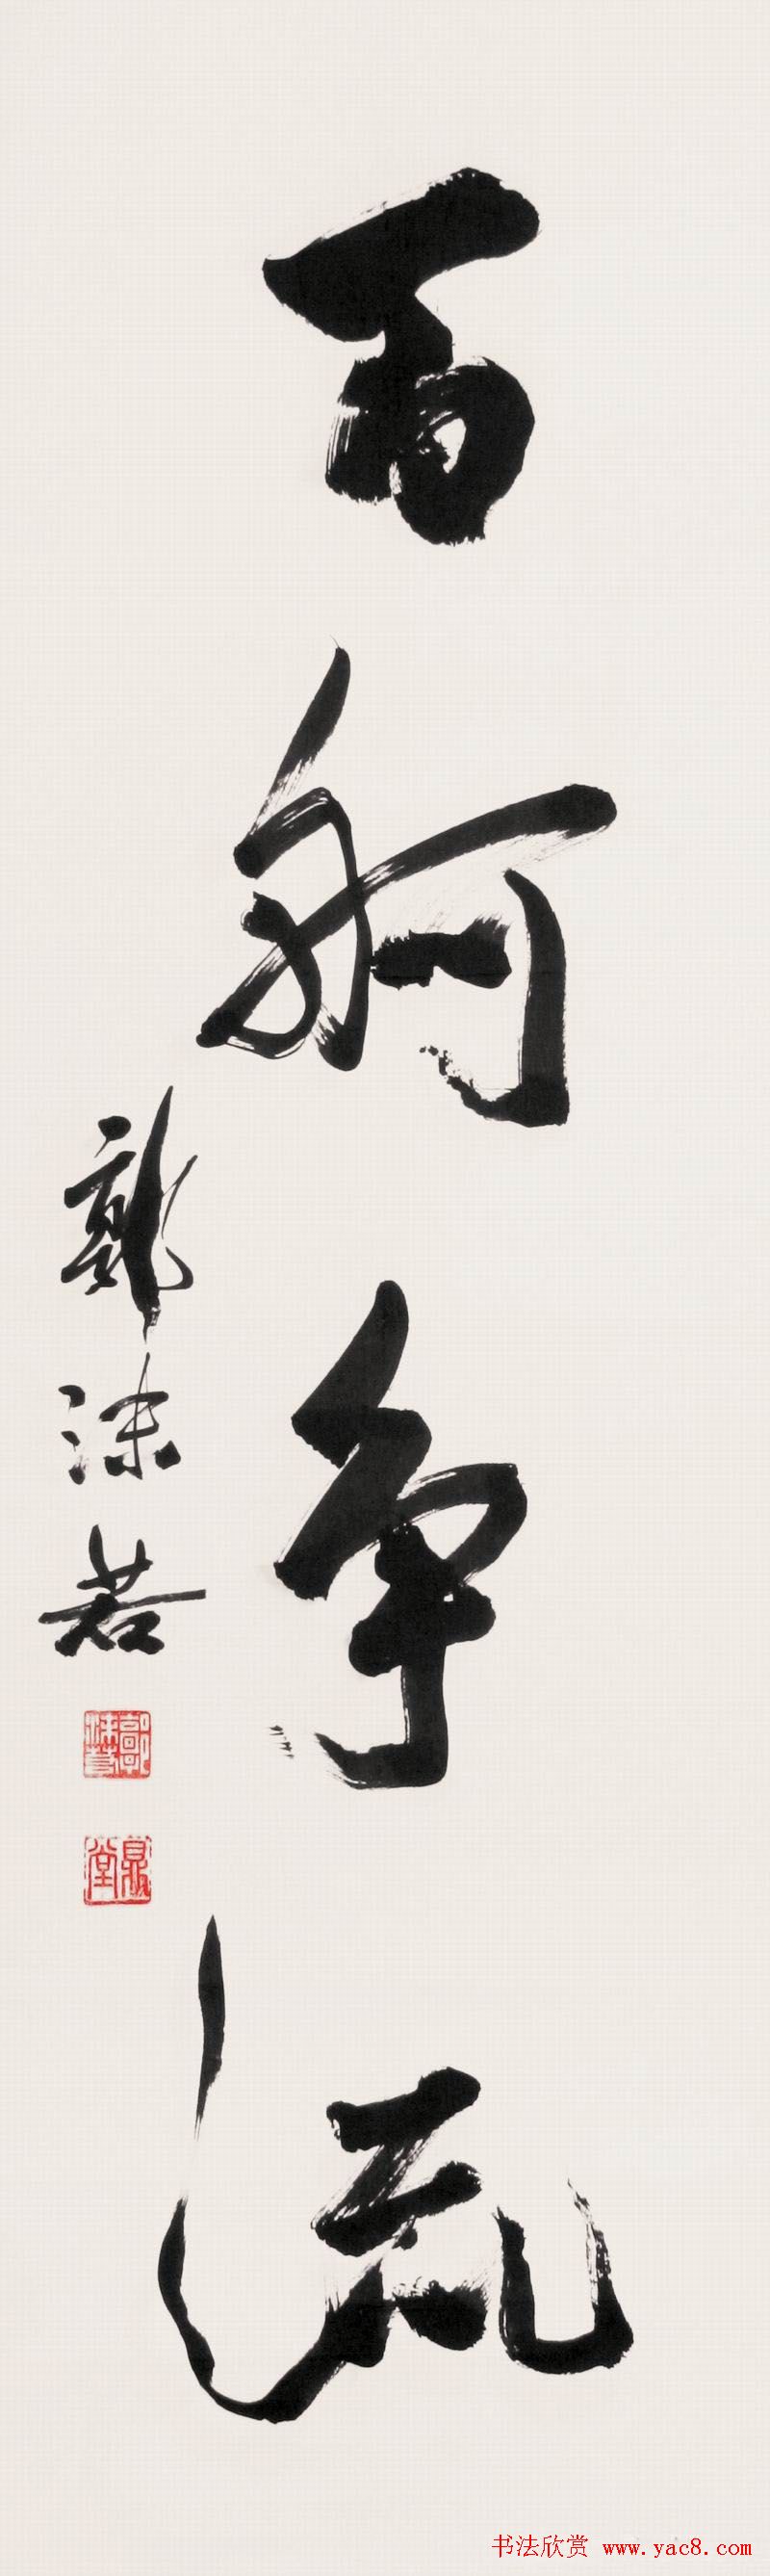 百舸争流
郭沫若
郭沫若
鼎堂
书法欣赏 www.yac8.com